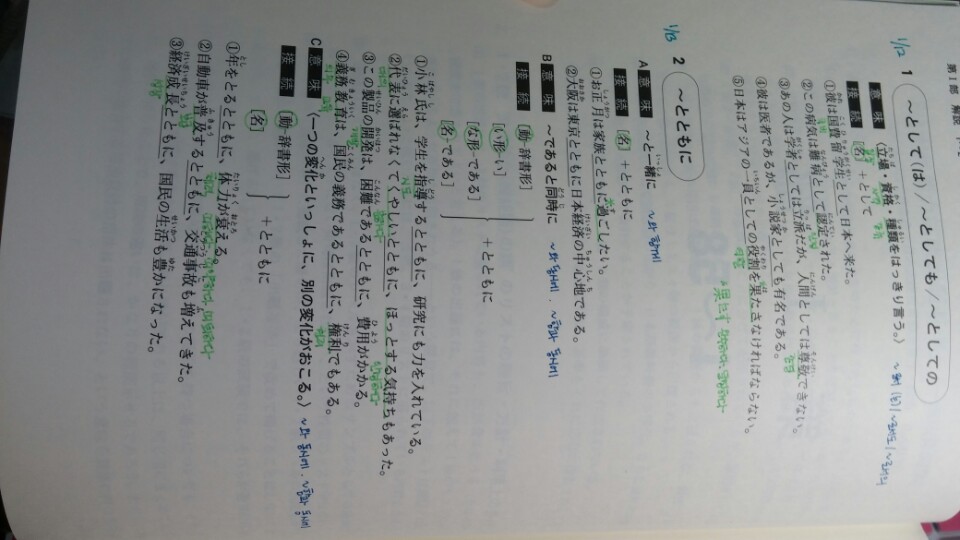 第Ⅰ部 解説
1/12
1 ～として(は)/～としても/～としての
意味 (立場・資格・種類をはっきり言う。) ~로서
接続 [名]+として
①彼は国費留学生として日本へ来た。
②この病気は難病として認定された。
③あの人は学者としては立派だが、人間としては尊敬できない。
④彼は医者であるが、小説家としても有名である。
⑤日本はアジアの一員としての役割を果たさなければならない。
*果たす
1/13
2 ～とともに
A 意味 ～と一緒に ~와 함께
接続 [名]+とともに
①お正月は家族とともに過ごしたい。
②大阪は東京とともに日本経済の中心地である。
B 意味 ～であると同時に ~와 동시에, ~함과 동시에
接続 [動-辞書形]
[い形-い]
[な形-である]
[名-である]
+とともに
①小林氏は、学生を指導するとともに、研究にも力を入れている。
②代表に選ばれなくてくやしいとともに、ほっとする気持ちもあった。
③この製品の開発は、困難であるとともに、費用がかかる。
④義務教育は、国民の義務であるとともに、権利でもある。
C 意味 (一つの変化といっしょに、別の変化がおこる。) ~와 동시에, ~함과 동시에
接続 [動-辞書形]
[名]
+とともに
①年をとるとともに、体力が衰える。
②自動車が普及するとともに、交通事故も増えてきた。
③経済成長とともに、国民の生活も豊かになった。